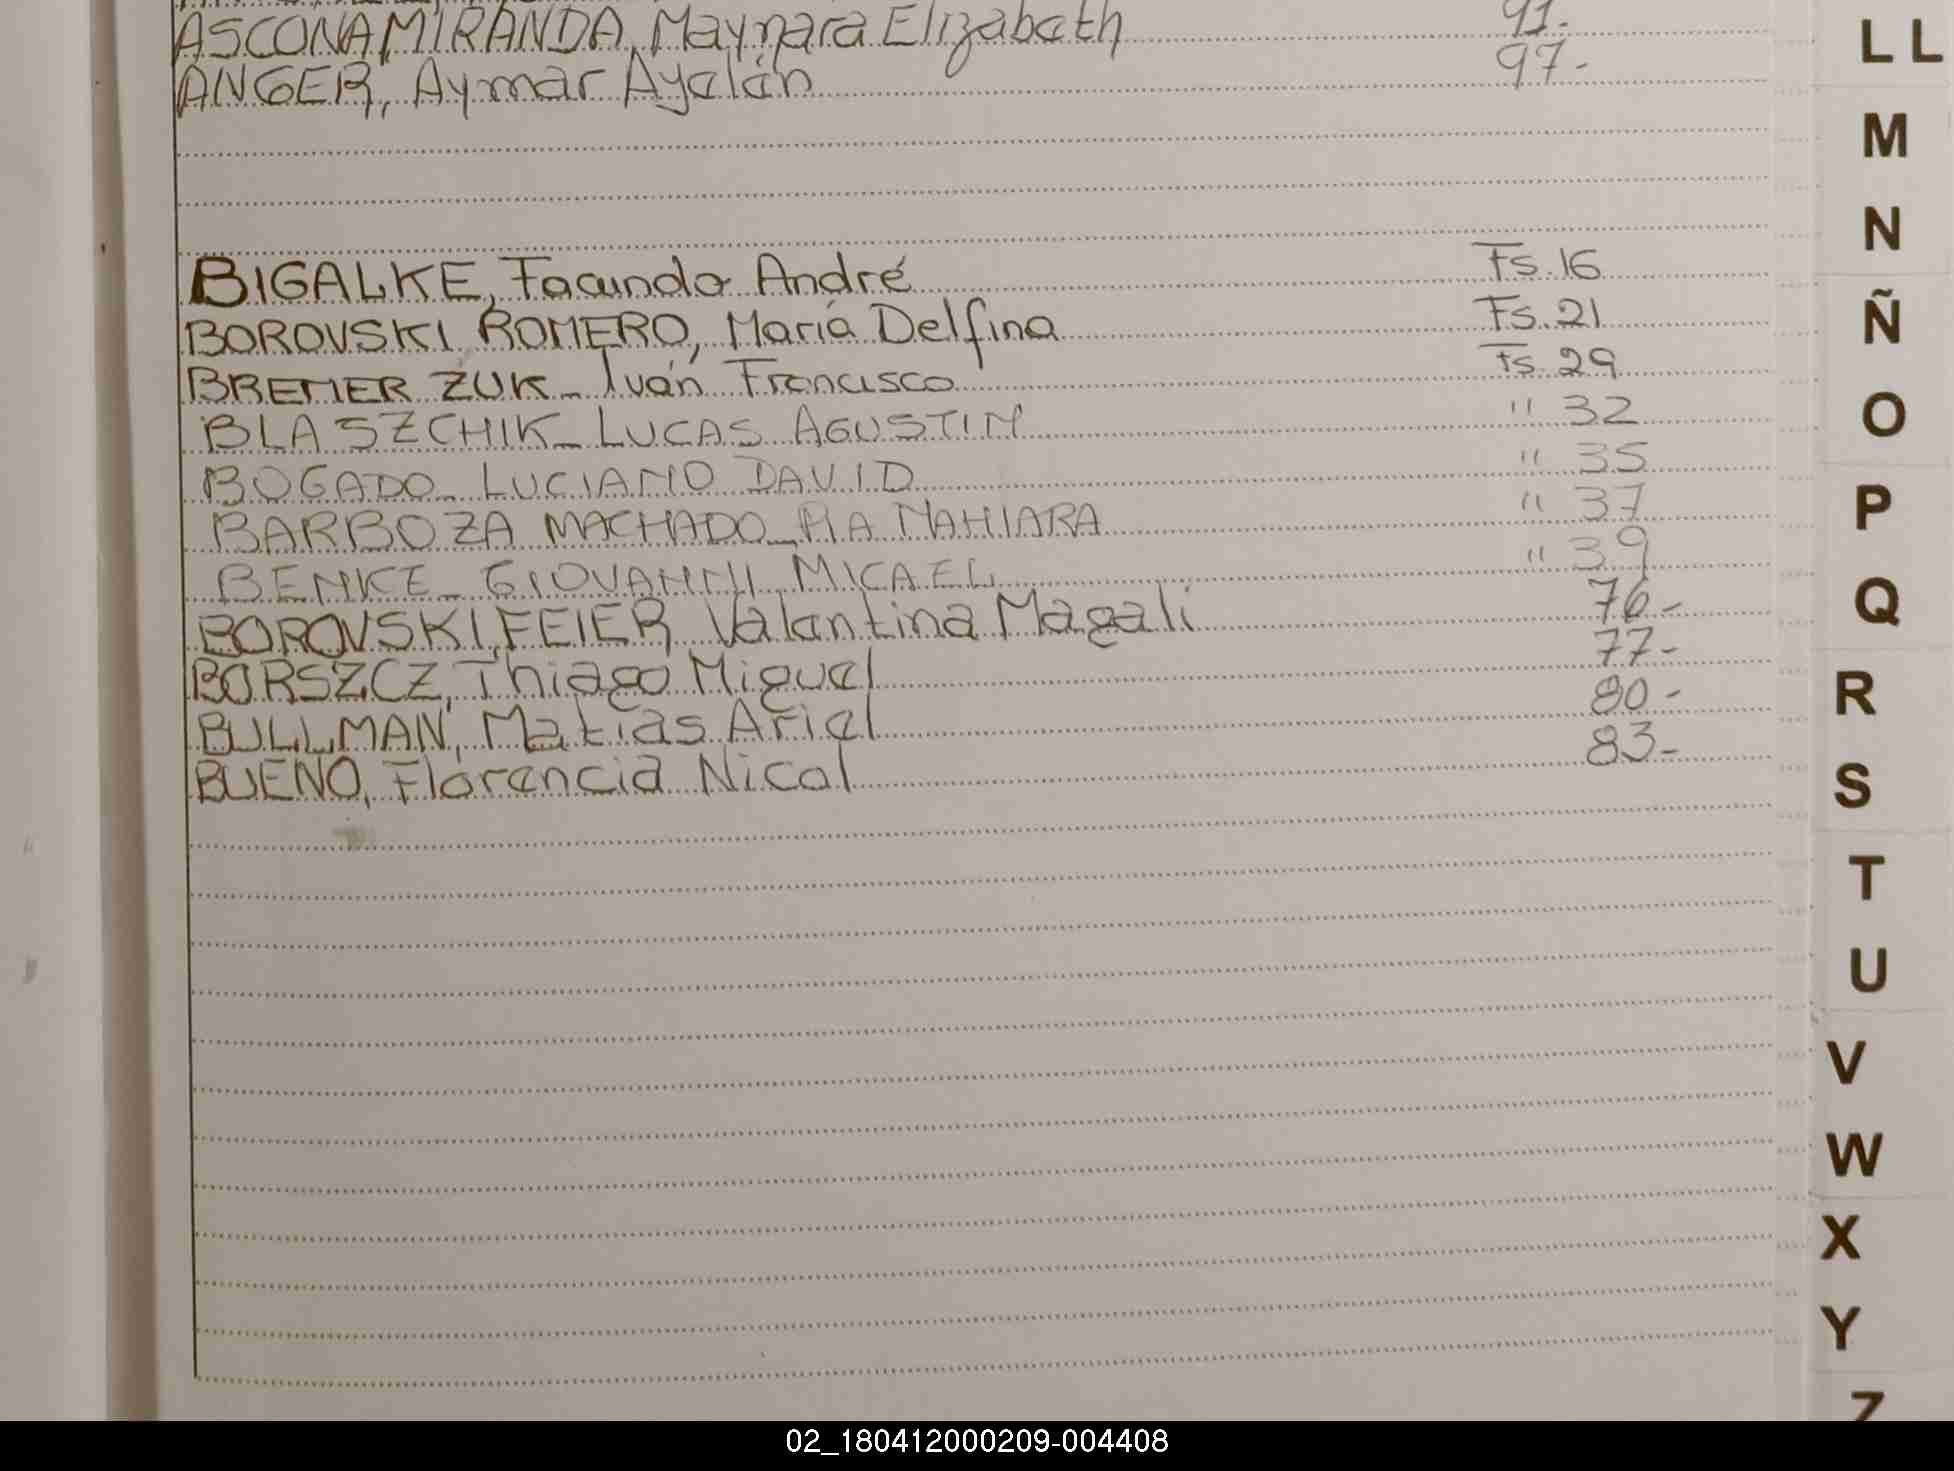 ASCONA MIRANDA, Maynara Elizabeth 91.-
ANGER, Aymar Ayelén 97.-
BIGALKE, Facundo André Fs. 16
BOROVSKI ROMERO, María Delfina Fs. 21
BREMER ZUK - Iván Francisco Fs. 29
BLASZCHIK - LUCAS AGUSTIN " 32
BOGADO - LUCIANO DAVID " 35
BARBOZA MACHADO - PIA NAHIARA " 37
BENKE - GIOVANNI MICAEL " 39
BOROVSKI, FEIER Valentina Magali 76.-
BORSZCZ, Thiago Miguel 77.-
BULLMAN, Matias Ariel 80.-
BUENO, Florencia Nicol 83.-
LL
M
N
Ñ
O
P
Q
R
S
T
U
V
W
X
Y
Z
02_180412000209-004408